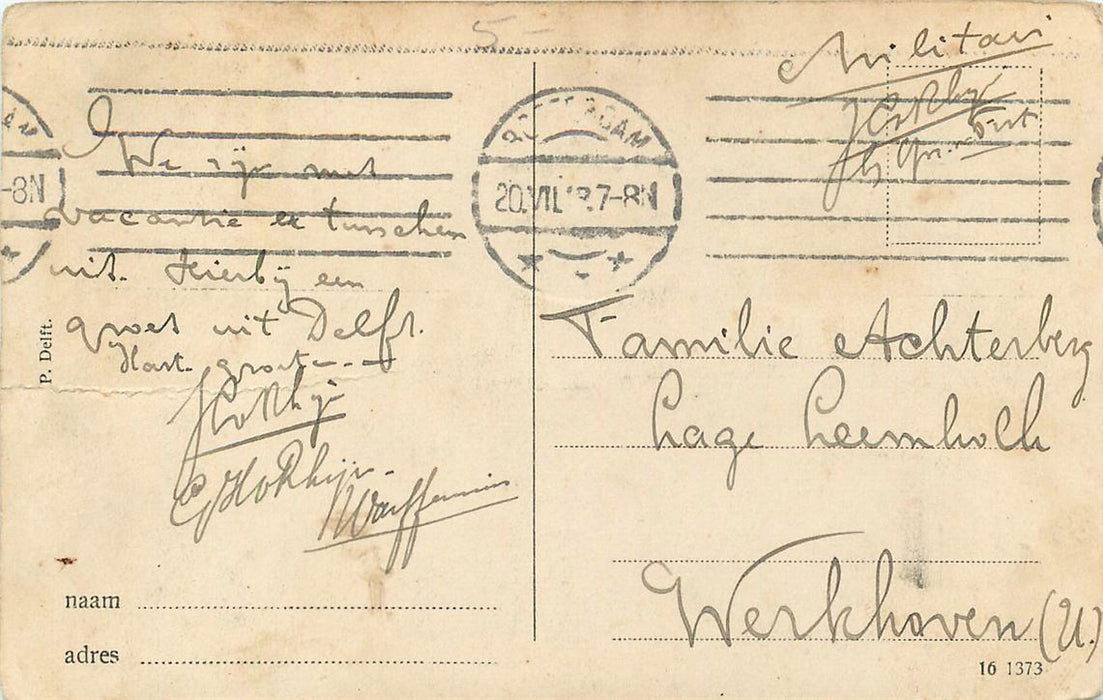 5-
Militair
ROTTERDAM
20.VII.18.7-8N
-8N
We zijn met
vacantie er tusschen
uit. Hierbij een
groet uit Delft.
Hart. groet
JHvRhijn
GHvRhijn-
P. Delft.
Familie Achterberg
Lage
Werkhoven (U.)
naam
adres
16 1373